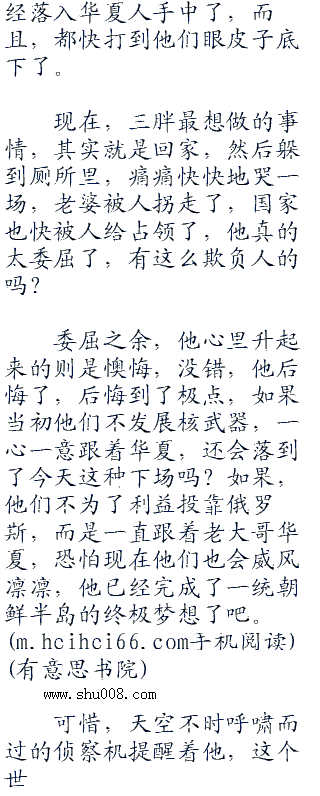 经落入华夏人手中了，而
且，都快打到他们眼皮子底
下了。
现在，三胖最想做的事
情，其实就是回家，然后躲
到厕所里，痛痛快快地哭一
场，老婆被人拐走了，国家
也快被人给占领了，他真的
太委屈了，有这么欺负人的
吗？
委屈之余，他心里升起
来的则是懊悔，没错，他后
悔了，后悔到了极点，如果
当初他们不发展核武器，一
心一意跟着华夏，还会落到
了今天这种下场吗？如果，
他们不为了利益投靠俄罗
斯，而是一直跟着老大哥华
夏，恐怕现在他们也会威风
凛凛，他已经完成了一统朝
鲜半岛的终极梦想了吧。
(m.hcihci66.com手机阅读)
(有意思书院)
www.shu008.com
可惜，天空不时呼啸而
过的侦察机提醒着他，这个
世